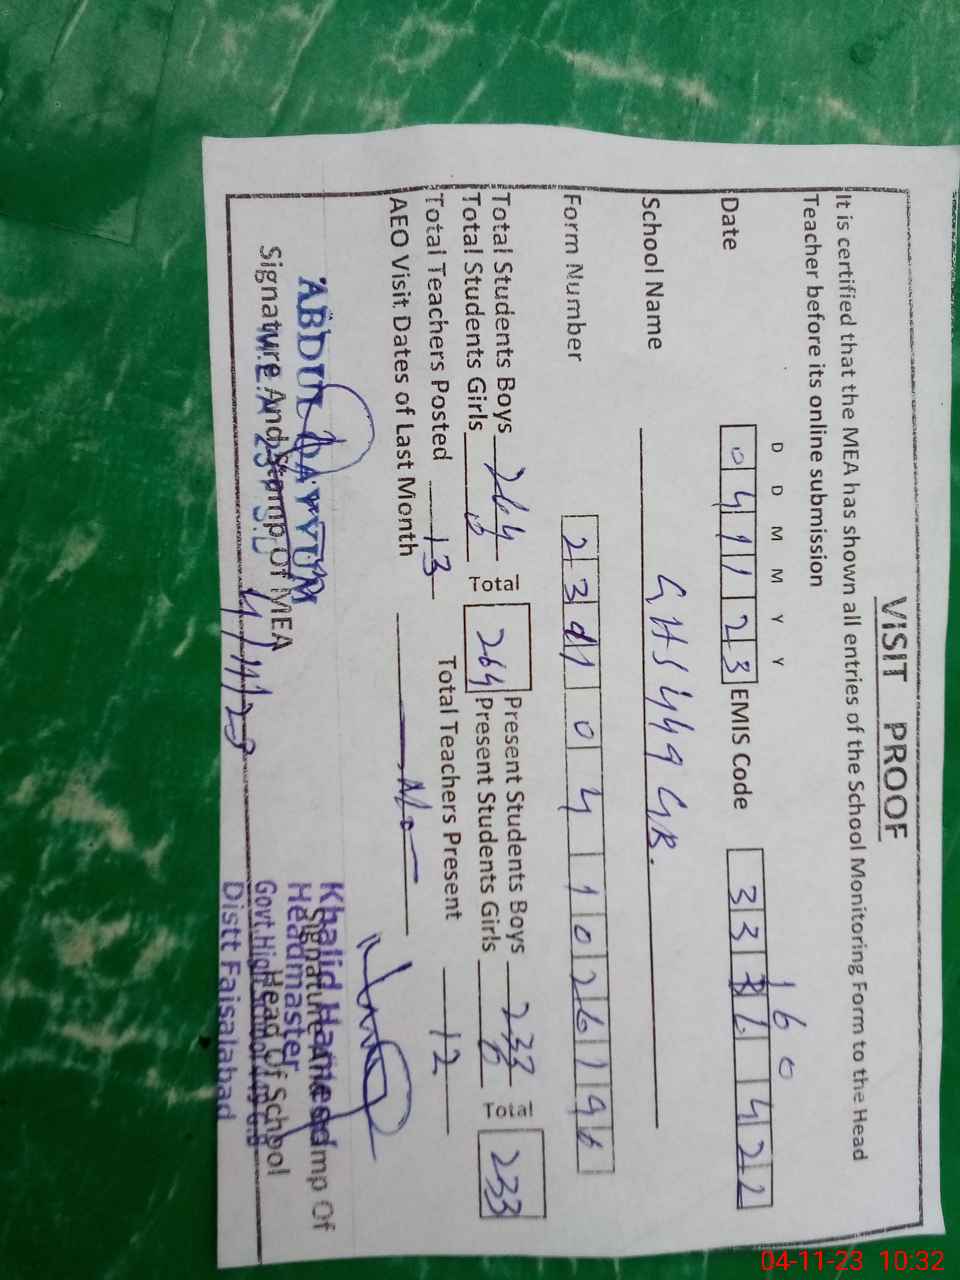 VISIT PROOF
It is certified that the MEA has shown all entries of the School Monitoring Form to the Head
Teacher before its online submission
D D M M Y Y
Date 041123 EMIS Code 33 422
160
School Name GHS 449 GB.
Form Number 23 041026196
Total Students Boys 264 Total 264 Present Students Boys 233 Total 233
Total Students Girls 0 Present Students Girls 0
Total Teachers Posted 13 Total Teachers Present 12
AEO Visit Dates of Last Month No
ABDUL QAYYUM
M.E.A
Signature And Stamp Of MEA
4/11/23
Khalid Hameed
Signature And Stamp Of
Headmaster
Head Of School
Govt. High School 449 G.B
Distt Faisalabad
04-11-23 10:32